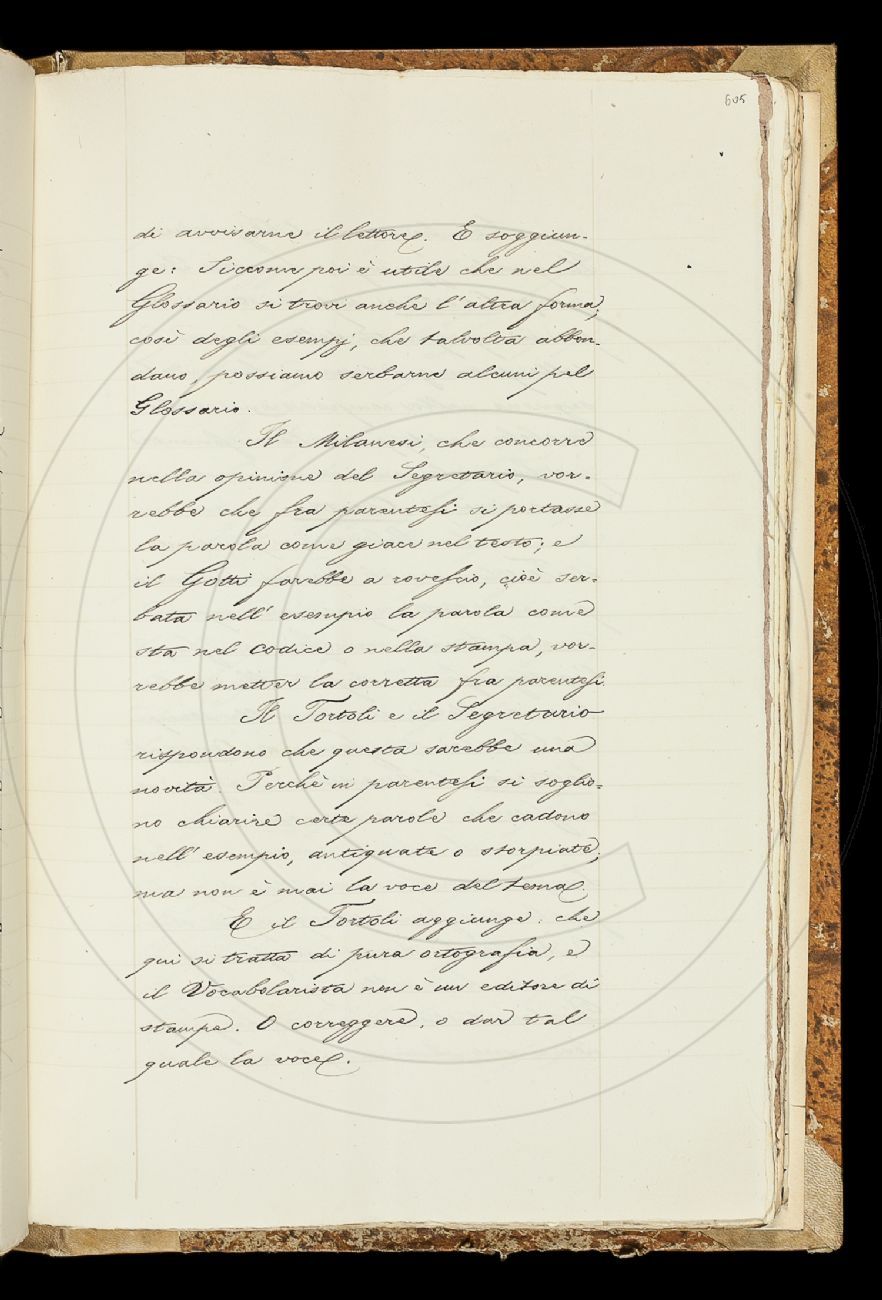 605
di avvisarne il lettore. E soggiun-
ge: Siccome poi è utile che nel
Glossario si trovi anche l'altra forma;
così degli esempj, che talvolta abbon-
dano, possiamo serbarne alcuni pel
Glossario.
Il Milanesi, che concorre
nella opinione del Segretario, vor-
rebbe che fra parentesi si portasse
la parola come giace nel testo; e
il Gotti farebbe a rovescio, cioè ser-
bata nell'esempio la parola come
sta nel codice o nella stampa, vor-
rebbe metter la corretta fra parentesi.
Il Tortoli e il Segretario
rispondono che questa sarebbe una
novità. Perchè in parentesi si soglio-
no chiarire certe parole che cadono
nell'esempio, antiquate o storpiate;
ma non è mai la voce del tema.
E il Tortoli aggiunge: che
qui si tratta di pura ortografia, e
il Vocabolarista non è un editore di
stampe. O correggere, o dar tal
quale la voce.